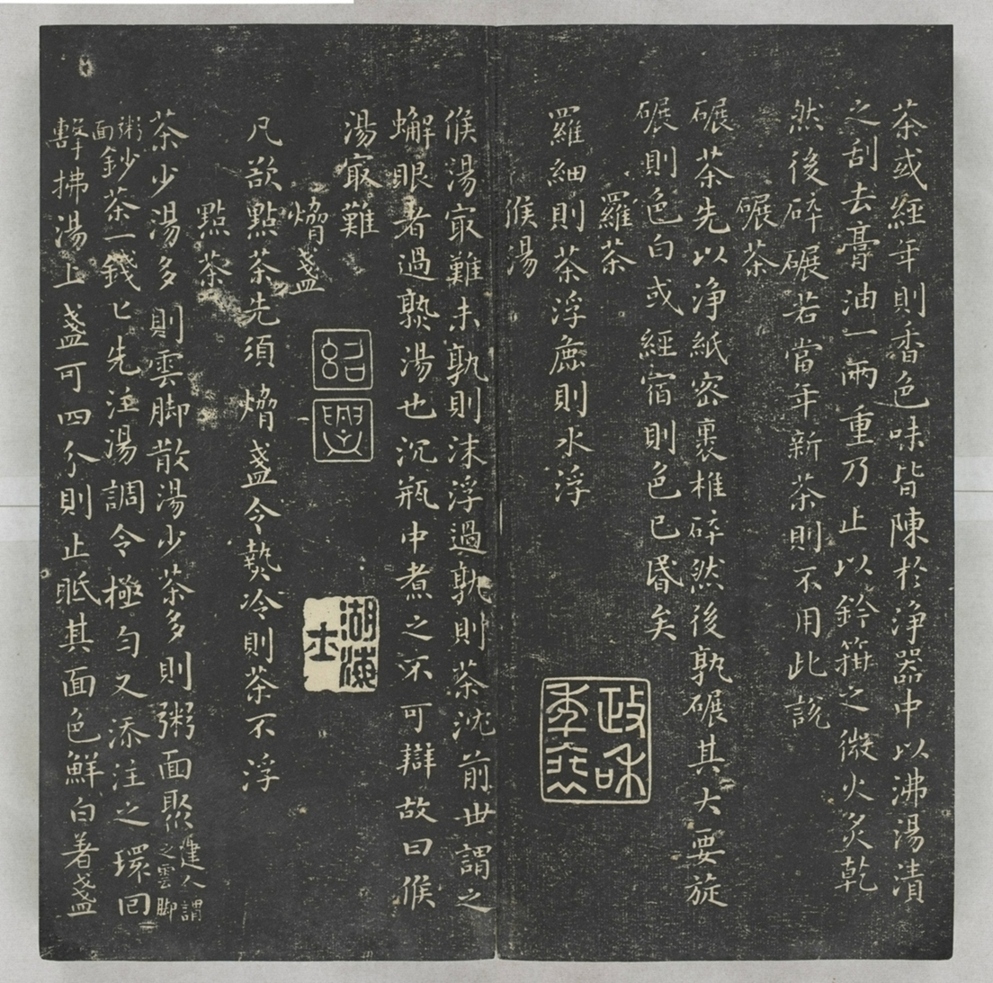 茶或經年則香色味皆陳於淨器中以沸湯漬
之刮去膏油一兩重乃止以鈐箝之微火炙乾
然後碎碾若當年新茶則不用此說
碾茶
碾茶先以淨紙密裹椎碎然後孰碾其大要旋
碾則色白或經宿則色已昬矣
羅茶
羅細則茶浮麁則水浮
候湯
候湯冣難未孰則沫浮過孰則茶沈前世謂之
蠏眼者過熟湯也沉瓶中煮之不可辯故曰候
湯冣難
熁盞
凡欲點茶先須熁盞令熱冷則茶不浮
點茶
茶少湯多則雲脚散湯少茶多則粥面聚建人謂之雲脚
粥面鈔茶一錢匕先注湯調令極勻又添注之環回
擊拂湯上盞可四分則止眂其面色鮮白著盞
紹
興
政和
湖海
士